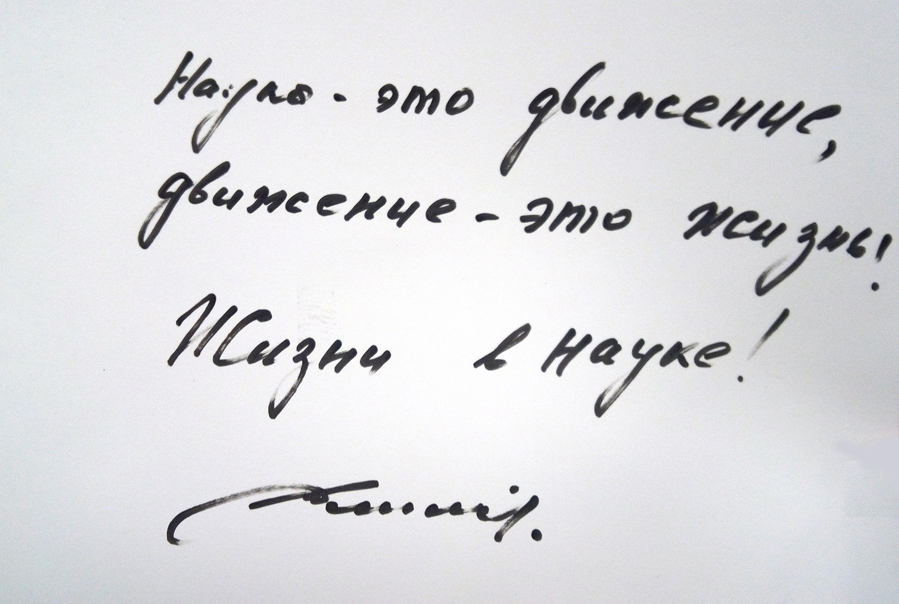 Наука - это движение,
движение - это жизнь!
Жизни в науке!